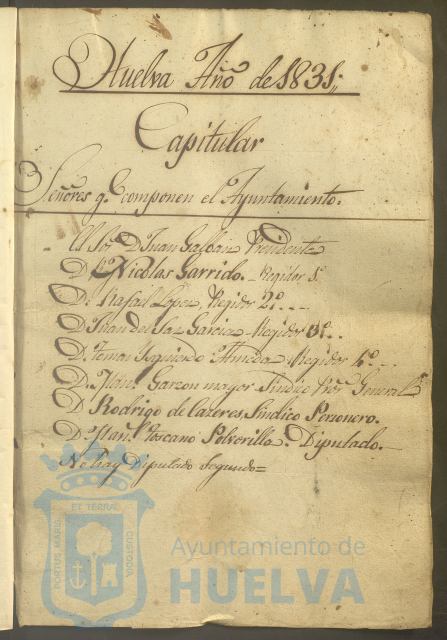 Huelva Año de 1831,,
Capitular
Señores q. componen el Ayuntamiento.
El Sor. D. Juan Galban Presidente
D. Nicolas Garrido. Regidor 1º
D. Rafael Lopez Regidor 2º
D. Juan de la Garcia Regidor 3º
D. Tomas Ysquierdo Almeda Regidor 4º
D. Garzon mayor Sindico Pror General
D Rodrigo de Cazeres, Sindico Personero.
D. Man.l Toscano Polverillo. Diputado.
No hay Diputado Segundo=
PORTUS MARIS ET TERRAE CUSTODIA
Ayuntamiento de
HUELVA